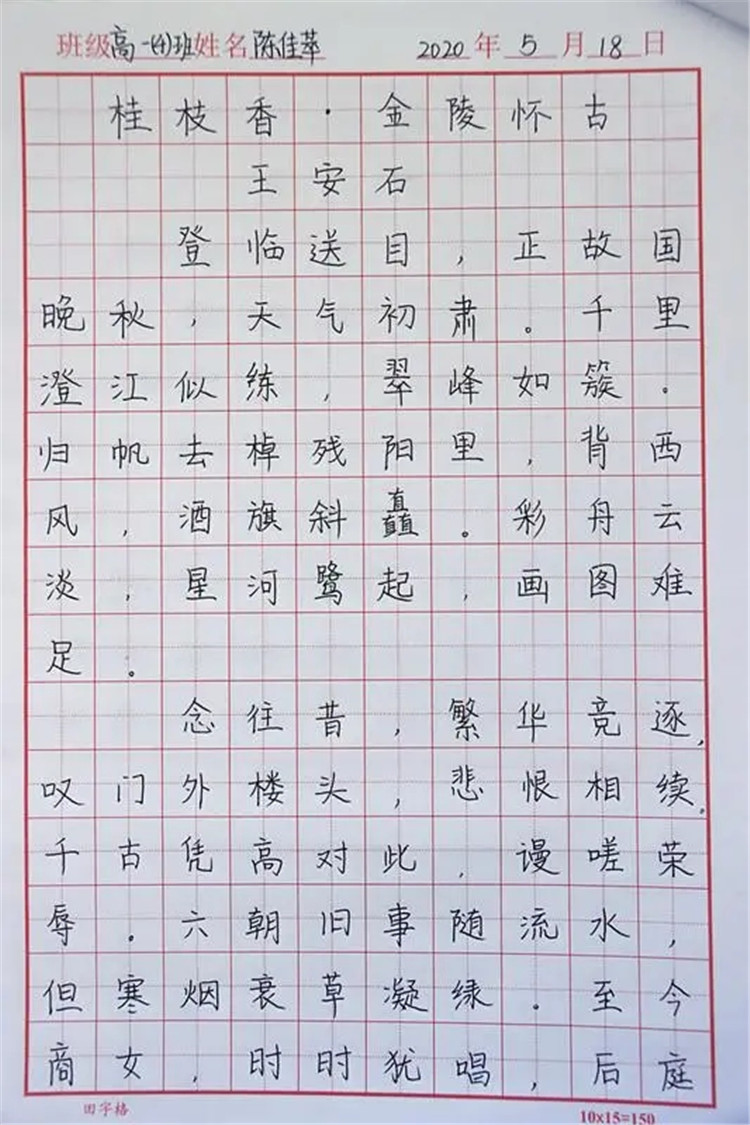 班级高一(4)班姓名陈佳萃 2020年5月18日
桂枝香·金陵怀古
王安石
登临送目，正故国
晚秋，天气初肃。千里
澄江似练，翠峰如簇。
归帆去棹残阳里，背西
风，酒旗斜矗。彩舟云
淡，星河鹭起，画图难
足。
念往昔，繁华竞逐，
叹门外楼头，悲恨相续。
千古凭高对此，谩嗟荣
辱。六朝旧事随流水，
但寒烟衰草凝绿。至今
商女，时时犹唱，后庭
田字格 10x15=150